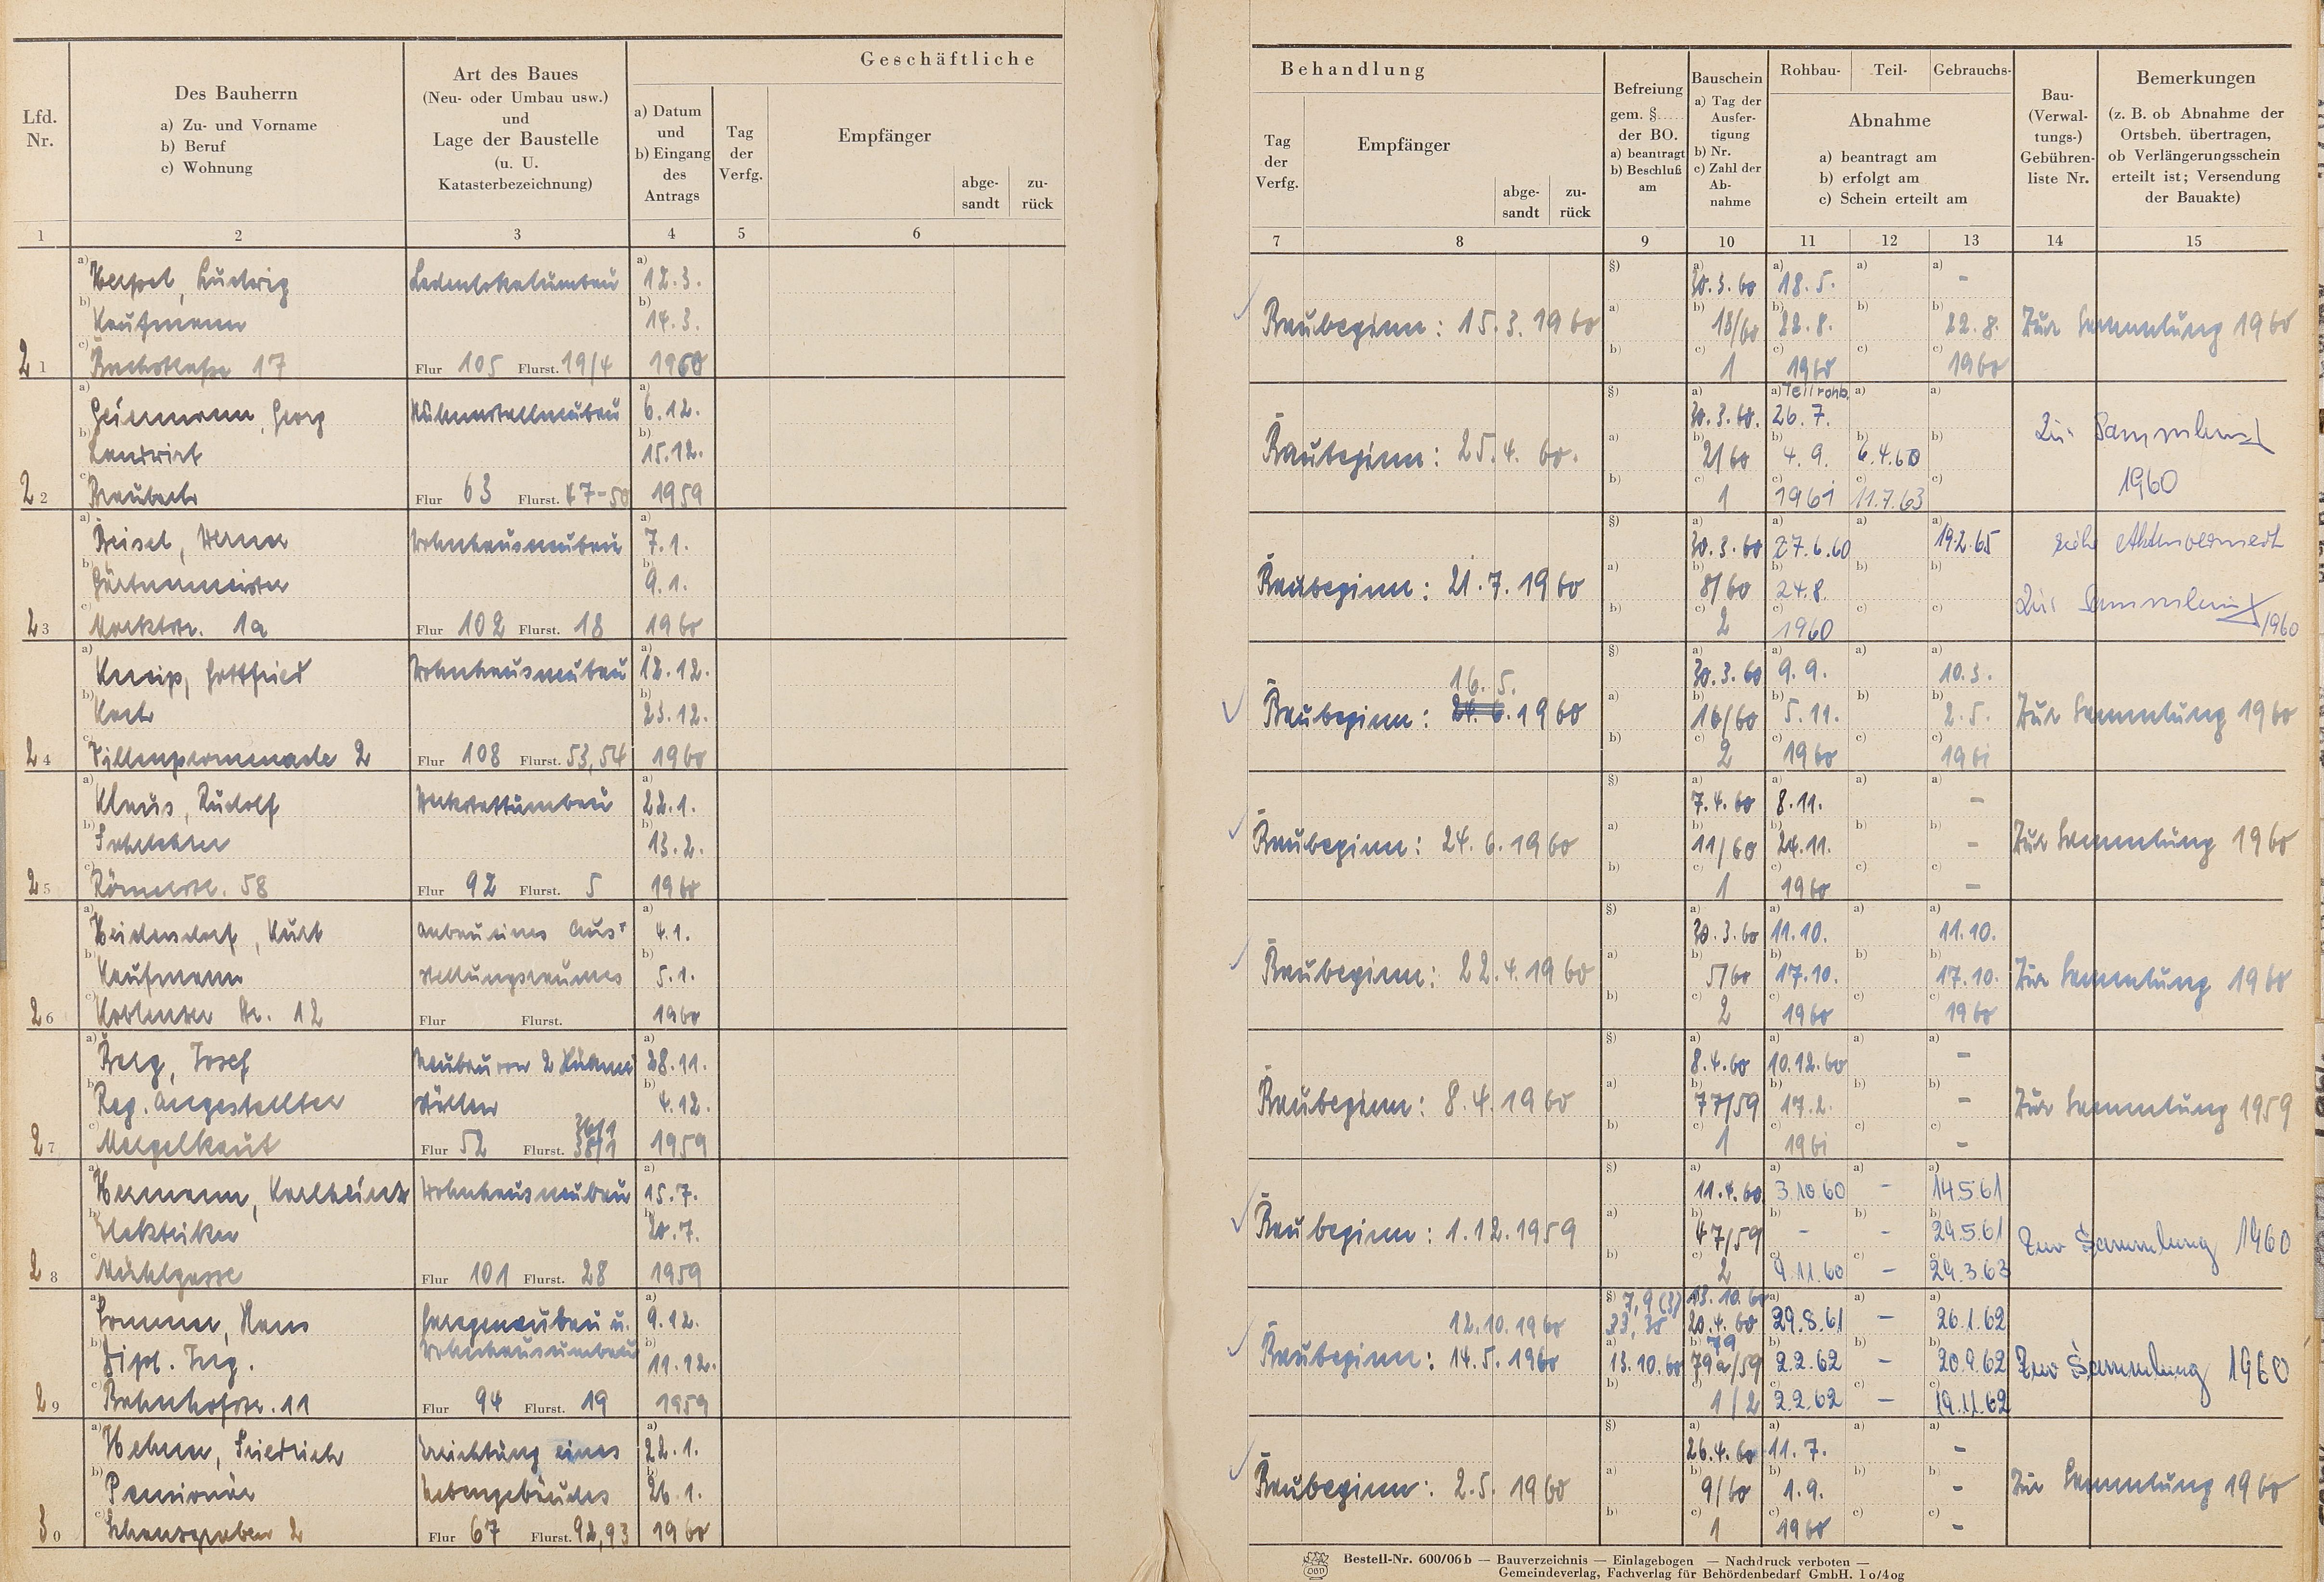 Geschäftliche
Lfd.
Nr.
Des Bauherrn
a) Zu- und Vorname
b) Beruf
c) Wohnung
Art des Baues
(Neu- oder Umbau usw.)
und
Lage der Baustelle
(u. U.
Katasterbezeichnung)
a) Datum
und
b) Eingang
des
Antrags
Tag
der
Verfg.
Empfänger
abge-
sandt
zu-
rück
1 2 3 4 5 6
Behandlung
Tag
der
Verfg.
Empfänger
abge-
sandt
zu-
rück
Befreiung
gem. §.....
der BO.
a) beantragt
b) Beschluß
am
Bauschein
a) Tag der
Ausfer-
tigung
b) Nr.
c) Zahl der
Ab-
nahme
Rohbau- Teil- Gebrauchs-
Abnahme
a) beantragt am
b) erfolgt am
c) Schein erteilt am
Bau-
(Verwal-
tungs-)
Gebühren-
liste Nr.
Bemerkungen
(z. B. ob Abnahme der
Ortsbeh. übertragen,
ob Verlängerungsschein
erteilt ist; Versendung
der Bauakte)
7 8 9 10 11 12 13 14 15
a) Ludwig Ladenlokalumbau a) 12.3.
b) Kaufmann b) 14.3.
21 c) 17 Flur 105 Flurst. 19/4 1960
§) a) 30.3.60 a) 18.5. a) a) -
Baubeginn: 15.3.1960 a) b) 13/60 b) 22.8. b) b) 22.8. Zur Sammlung 1960
b) c) 1 c) 1960 c) c) 1960
a) Heinemann, Georg Hühnerstallneubau a) 6.12.
b) Landwirt b) 15.12.
22 c) Braubach Flur 63 Flurst. 47-50 1959
§) a) 30.3.60. a) Teilrohb. 26.7. a) a)
Baubeginn: 25.4.60. a) b) 2/60 b) 4.9. b) 6.4.60 b) Zur Sammlung
b) c) 1 c) 1961 c) 11.7.63 c) 1960
a) Beisel, Werner Wohnhausneubau a) 7.1.
b) Gärtnermeister b) 9.1.
23 c) Marktstr. 1a Flur 102 Flurst. 18 1960
§) a) 30.3.60 a) 27.6.60 a) a) 19.2.65 Aktenvermerk
Baubeginn: 21.7.1960 a) b) 8/60 b) 24.8. b) b)
b) c) 2 c) 1960 c) c) Zur Sammlung 1960
a) Kneip, Gottfried Wohnhausneubau a) 12.12.
b) Koch b) 23.12.
24 c) Villenpromenade 2 Flur 108 Flurst. 53,54 1960
16.5.
§) a) 30.3.60 a) 9.9. a) a) 10.3.
Baubeginn: 24.6.1960 a) b) 16/60 b) 5.11. b) b) 2.5. Zur Sammlung 1960
b) c) 2 c) 1960 c) c) 1961
a) Klaus, Rudolf Werkstattumbau a) 22.1.
b) b) 13.2.
25 c) Römerstr. 58 Flur 92 Flurst. 5 1960
§) a) 7.4.60 a) 8.11. a) a) -
Baubeginn: 24.6.1960 a) b) 11/60 b) 24.11. b) b) - Zur Sammlung 1960
b) c) 1 c) 1960 c) c) -
a) Heidersdorf, Kurt Anbau eines Aus- a) 4.1.
b) Kaufmann stellungsraumes b) 5.1.
26 c) Koblenzer Str. 12 Flur Flurst. 1960
§) a) 30.3.60 a) 11.10. a) a) 11.10.
Baubeginn: 22.4.1960 a) b) 5/60 b) 17.10. b) b) 17.10. Zur Sammlung 1960
b) c) 2 c) 1960 c) c) 1960
a) Berg, Josef Neubau von 2 Hühner- a) 28.11.
b) Reg. Angestellter ställen b) 4.12.
27 c) Mergelkaut Flur 52 Flurst. 36/1 38/1 1959
§) a) 8.4.60 a) 10.12.60 a) a) -
Baubeginn: 8.4.1960 a) b) 77/59 b) 17.2. b) b) - Zur Sammlung 1959
b) c) 1 c) 1961 c) c) -
a) Hermann, Karlheinz Wohnhausneubau a) 15.7.
b) Elektriker b) 20.7.
28 c) Mühlgasse Flur 101 Flurst. 28 1959
§) a) 11.4.60 a) 3.10.60 a) - a) 14.5.61
Baubeginn: 1.12.1959 a) b) 47/59 b) - b) - b) 29.5.61 Zur Sammlung 1960
b) c) 2 c) 9.11.60 c) - c) 29.3.63
a) Sommer, Hans Garagenneubau u. a) 9.12.
b) Dipl. Ing. Wohnhausumbau b) 11.12.
29 c) Bahnhofstr. 11 Flur 94 Flurst. 19 1959
12.10.1960 §) 7,9(3) 33, a) 13.10.60 20.4.60 a) 29.8.61 a) - a) 26.1.62
Baubeginn: 14.5.1960 a) 13.10.60 b) 79 79a/59 b) 2.2.62 b) - b) 20.9.62 Zur Sammlung 1960
b) c) 1/2 c) 2.2.62 c) - c) 19.11.62
a) Friedrich Errichtung eines a) 22.1.
b) Pensionär Nebengebäudes b) 26.1.
30 c) Schanzgraben 2 Flur 67 Flurst. 92,93 1960
§) a) 26.4.60 a) 11.7. a) a) -
Baubeginn: 2.5.1960 a) b) 9/60 b) 1.9. b) b) - Zur Sammlung 1960
b) c) 1 c) 1960 c) c) -
Bestell-Nr. 600/06 b — Bauverzeichnis — Einlagebogen — Nachdruck verboten —
Gemeindeverlag, Fachverlag für Behördenbedarf GmbH. 1o/4og